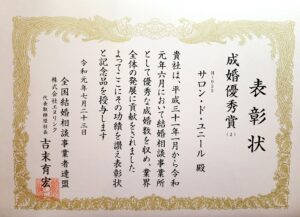 表彰状
成婚優秀賞(2)
サロン・ド・ユニール 殿
貴社は、平成三十一年一月から令和
元年六月において結婚相談事業所
として優秀な成婚数を収め、業界
全体の発展に貢献をされました
よってここにその功績を讃え表彰状
と記念品を授与します
令和元年七月二十三日
全国結婚相談事業者連盟
株式会社エヌリンク
代表取締役社長 吉末育宏